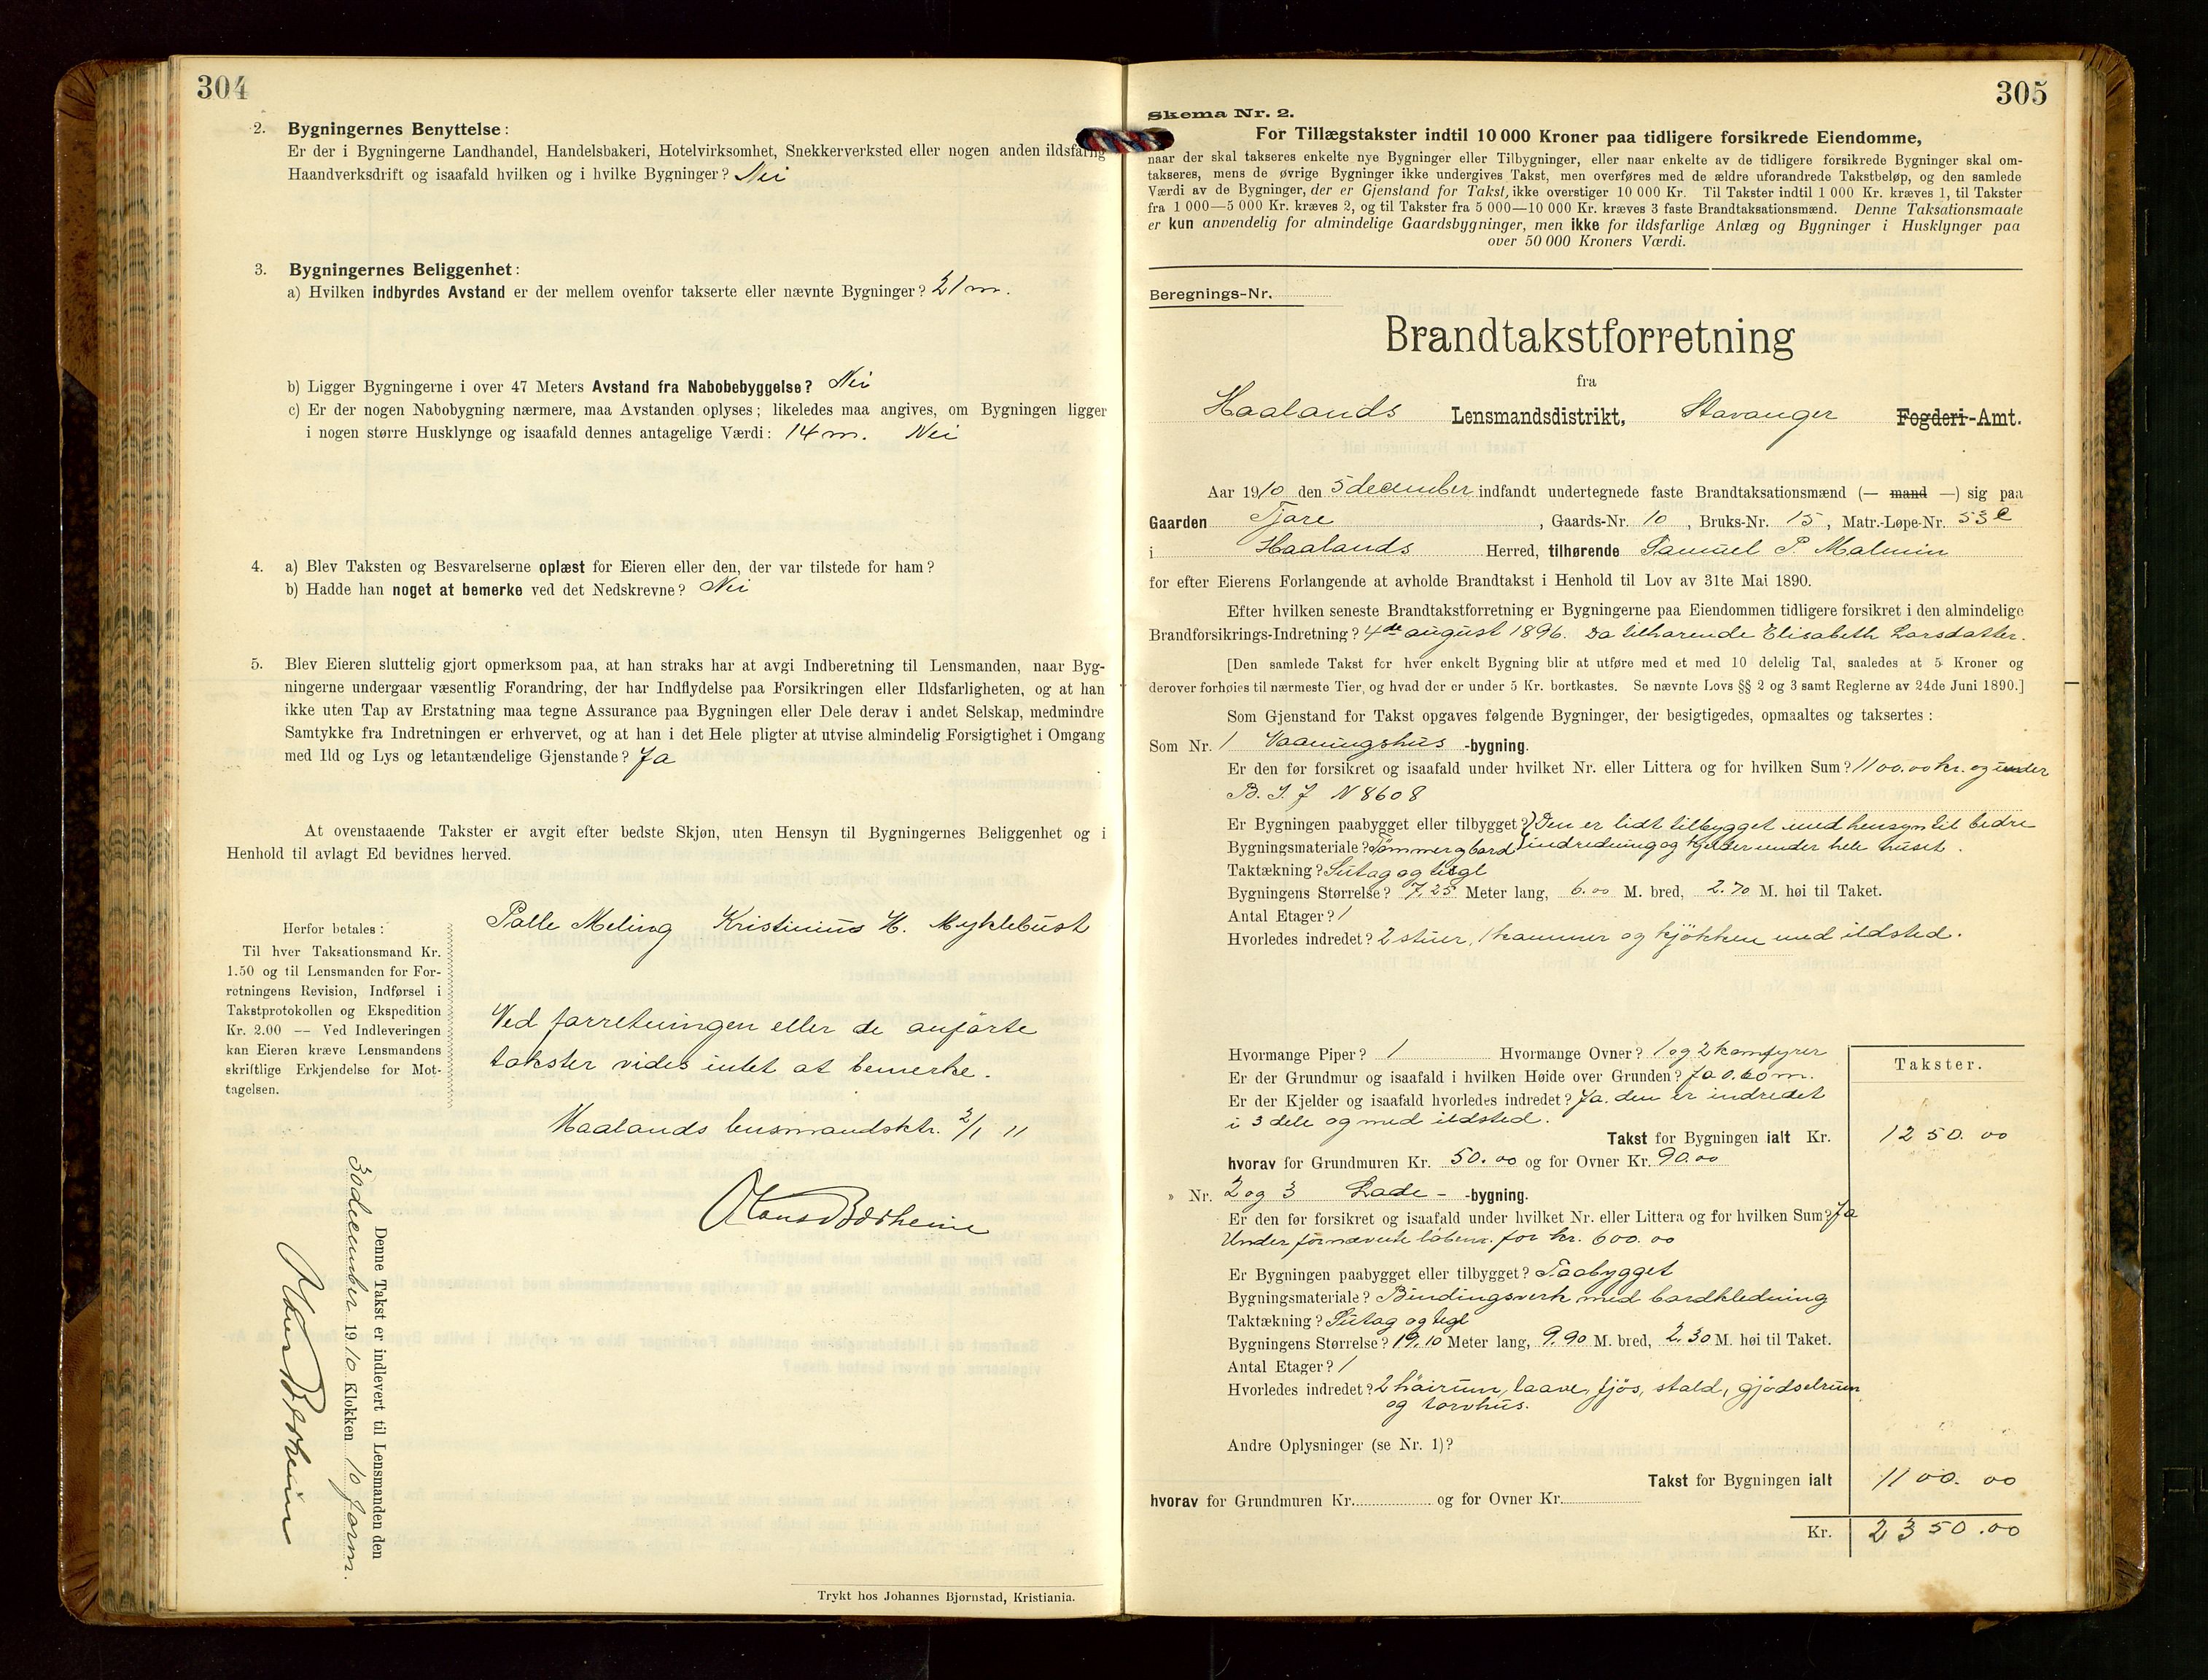 304
2. Bygningernes Benyttelse:
Er der i Bygningerne Landhandel, Handelsbakeri, Hotelvirksomhet, Snekkerverksted eller nogen anden ildsfarlig
Haandverksdrift og isaafald hvilken og i hvilke Bygninger? Nei
3. Bygningernes Beliggenhet:
a) Hvilken indbyrdes Avstand er der mellem ovenfor takserte eller nævnte Bygninger? 21 m.
b) Ligger Bygningerne i over 47 Meters Avstand fra Nabobebyggelse? Nei
c) Er der nogen Nabobygning nærmere, maa Avstanden oplyses; likeledes maa angives, om Bygningen ligger
i nogen større Husklynge og isaafald dennes antagelige Værdi: 14 m. Nei
4. a) Blev Taksten og Besvarelserne oplæst for Eieren eller den, der var tilstede for ham?
b) Hadde han noget at bemerke ved det Nedskrevne? Nei
5. Blev Eieren sluttelig gjort opmerksom paa, at han straks har at avgi Indberetning til Lensmanden, naar Byg-
ningerne undergaar væsentlig Forandring, der har Indflydelse paa Forsikringen eller Ildsfarligheten, og at han
ikke uten Tap av Erstatning maa tegne Assurance paa Bygningen eller Dele derav i andet Selskap, medmindre
Samtykke fra Indretningen er erhvervet, og at han i det Hele pligter at utvise almindelig Forsigtighet i Omgang
med Ild og Lys og letantændelige Gjenstande? Ja
At ovenstaaende Takster er avgit efter bedste Skjøn, uten Hensyn til Bygningernes Beliggenhet og i
Henhold til avlagt Ed bevidnes herved.
Palle Meling Kristinius H. Myklebust
Herfor betales:
Til hver Taksationsmand Kr.
1.50 og til Lensmanden for For-
retningens Revision, Indførsel i
Takstprotokollen og Ekspedition
Kr. 2.00 — Ved Indleveringen
kan Eieren kræve Lensmandens
skriftlige Erkjendelse for Mot-
tagelsen.
Ved forretningen eller de anførte
takster vides intet at bemerke.
Haalands lensmandsktr. 2/1 11
Denne Takst er indlevert til Lensmanden den
30 december 1910 Klokken 10 form.
Trykt hos Johannes Bjørnstad, Kristiania.
305
Skema Nr. 2.
For Tillægstakster indtil 10 000 Kroner paa tidligere forsikrede Eiendomme,
naar der skal takseres enkelte nye Bygninger eller Tilbygninger, eller naar enkelte av de tidligere forsikrede Bygninger skal om-
takseres, mens de øvrige Bygninger ikke undergives Takst, men overføres med de ældre uforandrede Takstbeløp, og den samlede
Værdi av de Bygninger, der er Gjenstand for Takst, ikke overstiger 10 000 Kr. Til Takster indtil 1 000 Kr. kræves 1, til Takster
fra 1 000—5 000 Kr. kræves 2, og til Takster fra 5 000—10 000 Kr. kræves 3 faste Brandtaksationsmænd. Denne Taksationsmaate
er kun anvendelig for almindelige Gaardsbygninger, men ikke for ildsfarlige Anlæg og Bygninger i Husklynger paa
over 50 000 Kroners Værdi.
Beregnings-Nr.
Brandtakstforretning
fra
Haalands Lensmandsdistrikt, Stavanger Fogderi-Amt.
Aar 1910 den 5 december indfandt undertegnede faste Brandtaksationsmænd (— mand —) sig paa
Gaarden Tjore, Gaards-Nr. 10, Bruks-Nr. 15, Matr.-Løpe-Nr. 53 e
i Haalands Herred, tilhørende Samuel P. Malmin
for efter Eierens Forlangende at avholde Brandtakst i Henhold til Lov av 31te Mai 1890.
Efter hvilken seneste Brandtakstforretning er Bygningerne paa Eiendommen tidligere forsikret i den almindelige
Brandforsikrings-Indretning? 4de august 1896. Da tilhørende Elisabeth Larsdatter.
[Den samlede Takst for hver enkelt Bygning blir at utføre med et med 10 delelig Tal, saaledes at 5 Kroner og
derover forhøies til nærmeste Tier, og hvad der er under 5 Kr. bortkastes. Se nævnte Lovs §§ 2 og 3 samt Reglerne av 24de Juni 1890.]
Som Gjenstand for Takst opgaves følgende Bygninger, der besigtigedes, opmaaltes og taksertes:
Som Nr. 1 Vaaningshus -bygning.
Er den før forsikret og isaafald under hvilket Nr. eller Littera og for hvilken Sum? 1100.00 kr. og under
B. I. J N 8608
Er Bygningen paabygget eller tilbygget? Den er lidt tilbygget med hensyn til bedre
Bygningsmateriale? Tømmer og bord indredning og kjelder under hele huset.
Taktækning? Sutag og tegl
Bygningens Størrelse? 7,25 Meter lang, 6.00 M. bred, 2.70 M. høi til Taket.
Antal Etager? 1
Hvorledes indredet? 2 stuer, 1 kammer og kjøkken med ildsted.
Hvormange Piper? 1 Hvormange Ovner? 1 og 2 komfyrer
Er der Grundmur og isaafald i hvilken Høide over Grunden? Ja 0.60 m.
Er der Kjelder og isaafald hvorledes indredet? Ja, den er indredet
i 3 dele og med ildsted.
Takster.
Takst for Bygningen ialt Kr. 1250.00
hvorav for Grundmuren Kr. 50.00 og for Ovner Kr. 90.00
» Nr. 2 og 3 Lade - -bygning.
Er den før forsikret og isaafald under hvilket Nr. eller Littera og for hvilken Sum? Ja
Under fornævnte løbenr. for kr. 600.00
Er Bygningen paabygget eller tilbygget? Paabygget
Bygningsmateriale? Bindingsverk med bordkledning
Taktækning? Sutag og tegl
Bygningens Størrelse? 19.10 Meter lang, 9.90 M. bred, 2.30 M. høi til Taket.
Antal Etager? 1
Hvorledes indredet? 2 høirum, laave, fjøs, stald, gjødselrum
og torvhus.
Andre Oplysninger (se Nr. 1)?
Takst for Bygningen ialt 1100.00
hvorav for Grundmuren Kr. og for Ovner Kr.
Kr. 2350.00